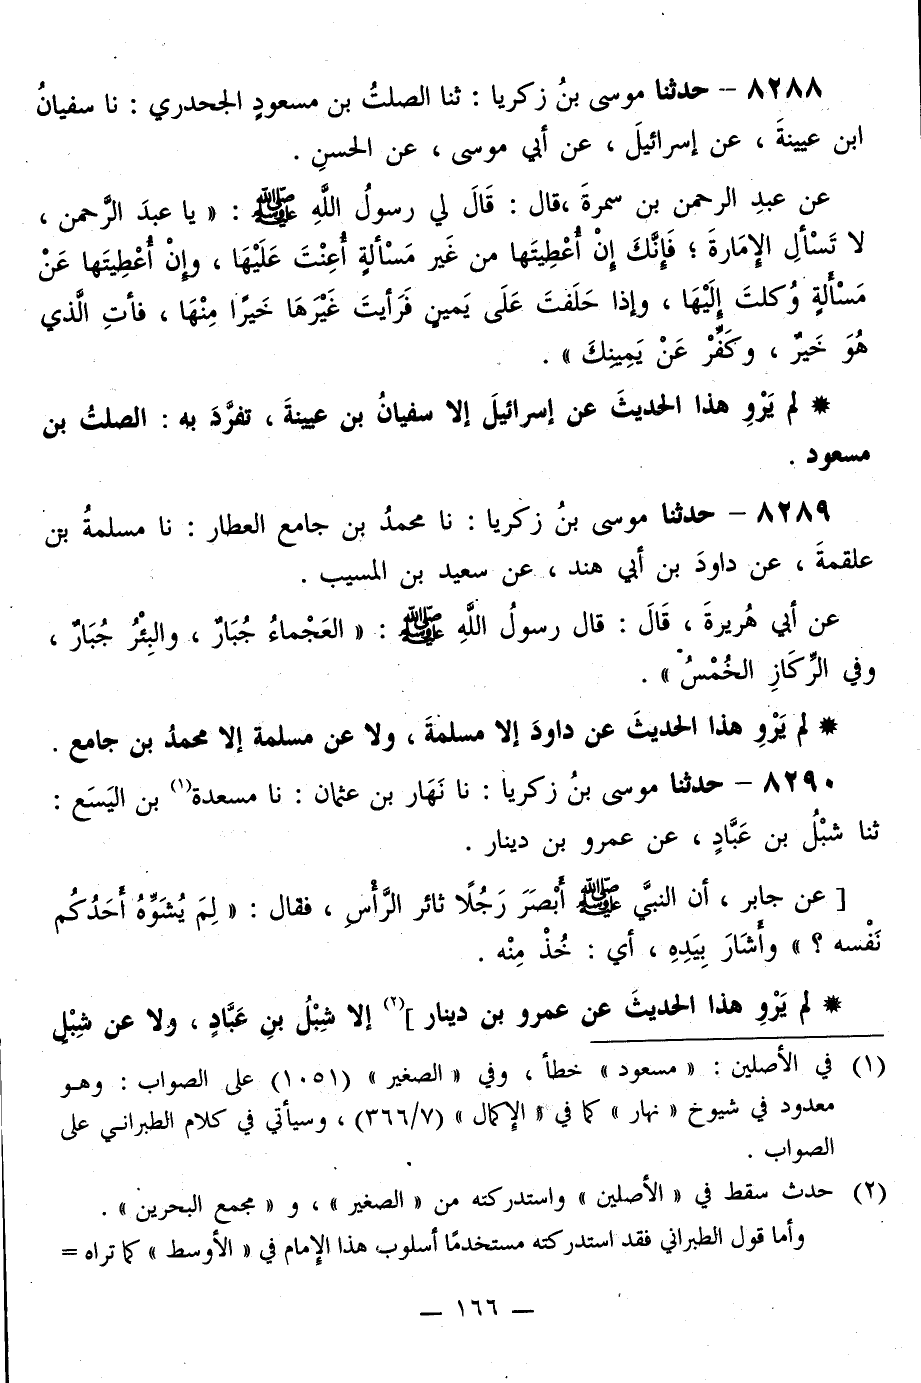 ٨٢٨٨ – حدثنا موسى بنُ زكريا : ثنا الصلتُ بن مسعودٍ الجحدري : نا سفيانُ
ابن عيينةَ ، عن إسرائيلَ ، عن أبي موسى ، عن الحسنِ .
عن عبدِ الرحمن بن سمرةَ ،قال : قَالَ لي رسولُ اللَّهِ ﷺ : « يا عبدَ الرَّحمن ،
لا تَسْألِ الإِمَارةَ ؛ فَإِنَّكَ إِنْ أُعْطِيتَها من غَير مَسْألةٍ أُعِنْتَ عَلَيْهَا ، وإِنْ أُعْطِيتَها عَنْ
مَسْأَلةٍ وُكلتَ إِلَيْهَا ، وإذا حَلَفتَ عَلَى يَمينٍ فَرَأيتَ غَيْرَهَا خَيرًا مِنْهَا ، فأتِ الَّذي
هُوَ خَيرٌ ، وكَفِّرْ عَنْ يَمِينِكَ » .
* لم يَرْوِ هذا الحديثَ عن إسرائيلَ إلا سفيانُ بن عيينةَ ، تفرَّدَ به : الصلتُ بن
مسعود .
٨٢٨٩ – حدثنا موسى بنُ زكريا : نا محمدُ بن جامع العطار : نا مسلمةُ بن
علقمةَ ، عن داودَ بن أبي هند ، عن سعيد بن المسيب .
عن أبي هُريرةَ ، قَالَ : قال رسولُ اللَّهِ ﷺ : « العَجْماءُ جُبَارٌ ، والبِئْرُ جُبَارٌ ،
وفي الرِّكَازِ الخُمْسُ » .
* لم يَرْوِ هذا الحديثَ عن داودَ إلا مسلمةَ ، ولا عن مسلمة إلا محمدُ بن جامع .
٨٢٩٠ – حدثنا موسى بنُ زكريا : نا نَهَار بن عثمان : نا مسعدة(١) بن اليَسَع :
ثنا شبْلُ بن عَبَّادٍ ، عن عمرو بن دينار .
[ عن جابر ، أن النبيَّ ﷺ أَبْصَرَ رَجُلًا ثائر الرَّأْسِ ، فقال : « لِمَ يُشَوِّهُ أَحَدُكُم
نَفْسه ؟ » وأَشَارَ بِيَدِهِ ، أي : خُذْ مِنْه .
* لم يَرْوِ هذا الحديثَ عن عمرو بن دينار ](٢) إلا شِبْلُ بنِ عَبَّادٍ ، ولا عن شِبْلٍ
(١) في الأصلين : « مسعود » خطأ ، وفي « الصغير » (١٠٥١) على الصواب : وهو
معدود في شيوخ « نهار » كما في « الإكمال » (٣٦٦/٧) ، وسيأتي في كلام الطبراني على
الصواب .
(٢) حدث سقط في « الأصلين » واستدركته من « الصغير » ، و « مجمع البحرين » .
وأما قول الطبراني فقد استدركته مستخدمًا أسلوب هذا الإمام في « الأوسط » كما تراه =
– ١٦٦ –